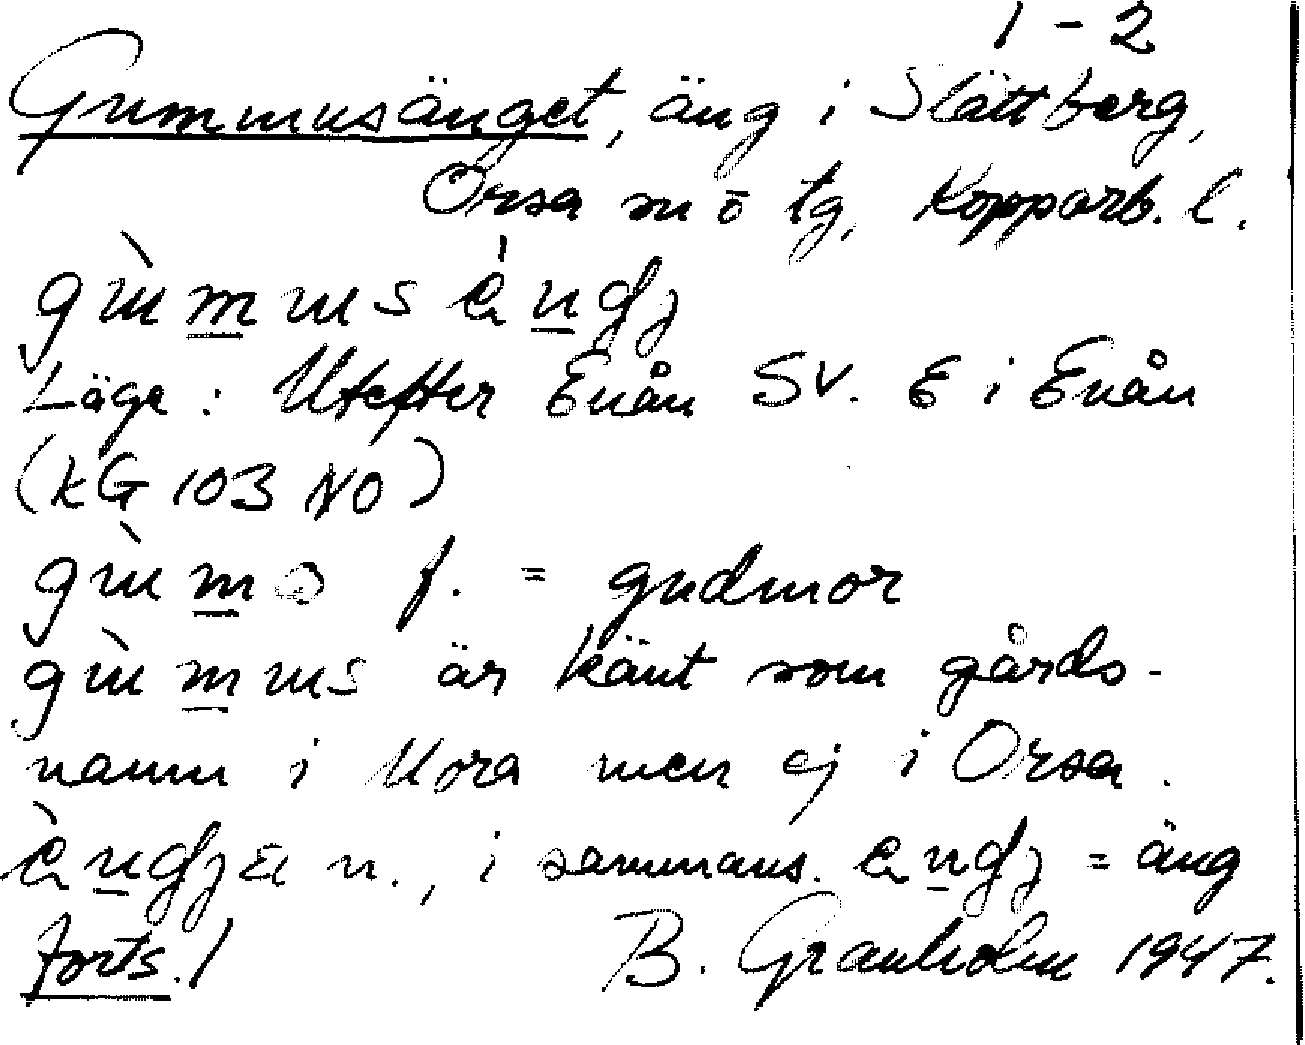 1-2
Gummusänget, äng i Slättberg,
Orsa m ö tg, Kopparb. l.
Läge: Utefter Enån SV. E i Enån
(kG 103 NO)
f. = gudmor
är känt som gårds-
namn i Mora men ej i Orsa.
n., i sammans. = äng
forts./ B. Granholm 1947.